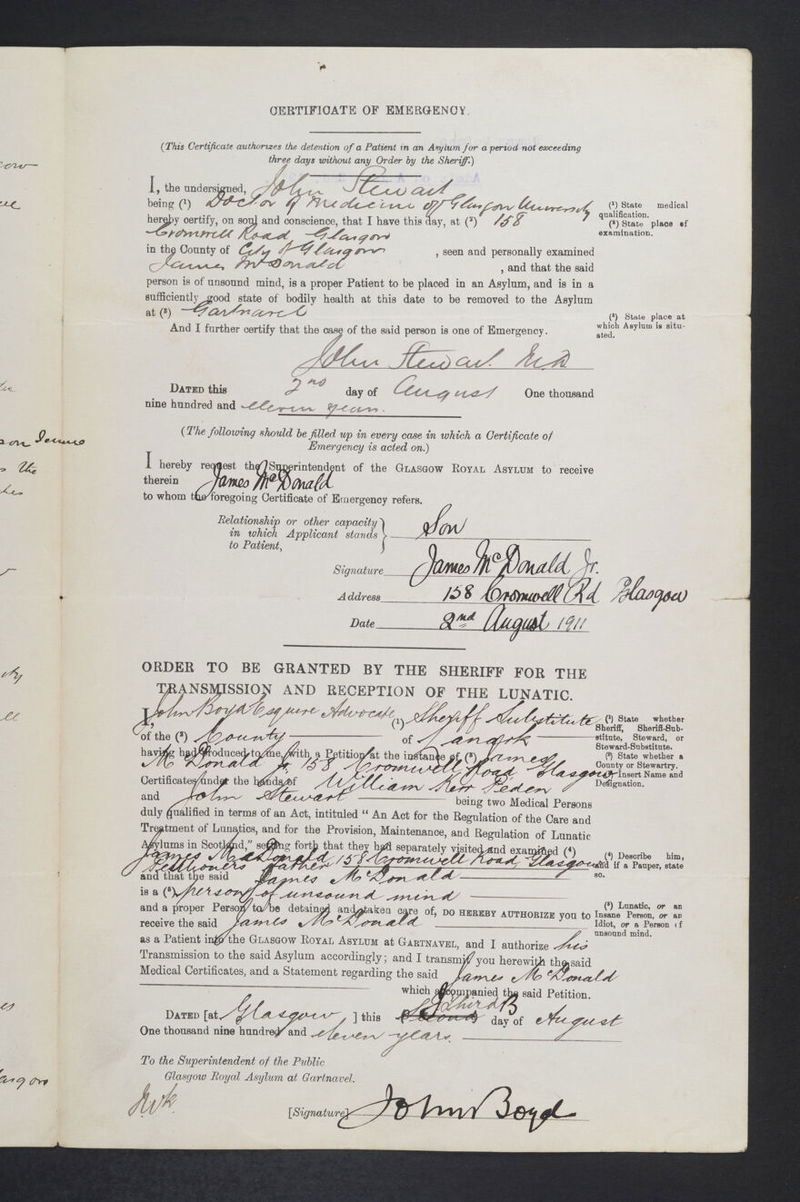 CERTIFICATE OF EMERGENCY.
(This Certificate authorizes the detention of a Patient in an Asylum for a period not exceeding
three days without any Order by the Sheriff.)
I, the undersigned, John Stewart
being (¹) Doctor of Medicine of Glasgow University
(¹) State medical
qualification.
hereby certify, on soul and conscience, that I have this day, at (²) 158
(²) State place of
examination.
Cromwell Road Glasgow
in the County of City of Glasgow , seen and personally examined
James McDonald , and that the said
person is of unsound mind, is a proper Patient to be placed in an Asylum, and is in a
sufficiently good state of bodily health at this date to be removed to the Asylum
at (³) Gartnavel
(³) State place at
which Asylum is situ-
ated.
And I further certify that the case of the said person is one of Emergency.
John Stewart. M.D
DATED this 2nd day of August One thousand
nine hundred and eleven years.
(The following should be filled up in every case in which a Certificate of
Emergency is acted on.)
I hereby request the Superintendent of the GLASGOW ROYAL ASYLUM to receive
therein James McDonald
to whom the foregoing Certificate of Emergency refers.
Relationship or other capacity
in which Applicant stands
to Patient, } Son
Signature James McDonald Jr.
Address 158 Cromwell Rd Glasgow
Date 2nd August 1911
ORDER TO BE GRANTED BY THE SHERIFF FOR THE
TRANSMISSION AND RECEPTION OF THE LUNATIC.
I, John Boyd Esquire Advocate, (¹) Sheriff Substitute
(¹) State whether
Sheriff, Sheriff-Sub-
stitute, Steward, or
Steward-Substitute.
of the (²) County of Lanark
(²) State whether a
County or Stewartry.
having had produced to me, with a Petition at the instance of (³) James
McDonald Jr. 158 Cromwell Road Glasgow
(³) Insert Name and
Designation.
Certificates under the hands of William Kerr Peden
and John Stewart being two Medical Persons
duly qualified in terms of an Act, intituled "An Act for the Regulation of the Care and
Treatment of Lunatics, and for the Provision, Maintenance, and Regulation of Lunatic
Asylums in Scotland," setting forth that they had separately visited and examined (⁴)
James McDonald, 158 Cromwell Road, Glasgow
Petitioners father
(⁴) Describe him,
and if a Pauper, state
so.
and that the said James McDonald
is a (⁵) person of unsound mind
and a proper Person to be detained and taken care of, DO HEREBY AUTHORIZE you to
(⁵) Lunatic, or an
Insane Person, or an
Idiot, or a Person of
unsound mind.
receive the said James McDonald
as a Patient into the GLASGOW ROYAL ASYLUM at GARTNAVEL, and I authorize his
Transmission to the said Asylum accordingly; and I transmit you herewith the said
Medical Certificates, and a Statement regarding the said James McDonald
which accompanied the said Petition.
DATED [at Glasgow, ] this Second Third JB day of August
One thousand nine hundred and eleven years.
To the Superintendent of the Public
Glasgow Royal Asylum at Gartnavel.
[Signature] John Boyd